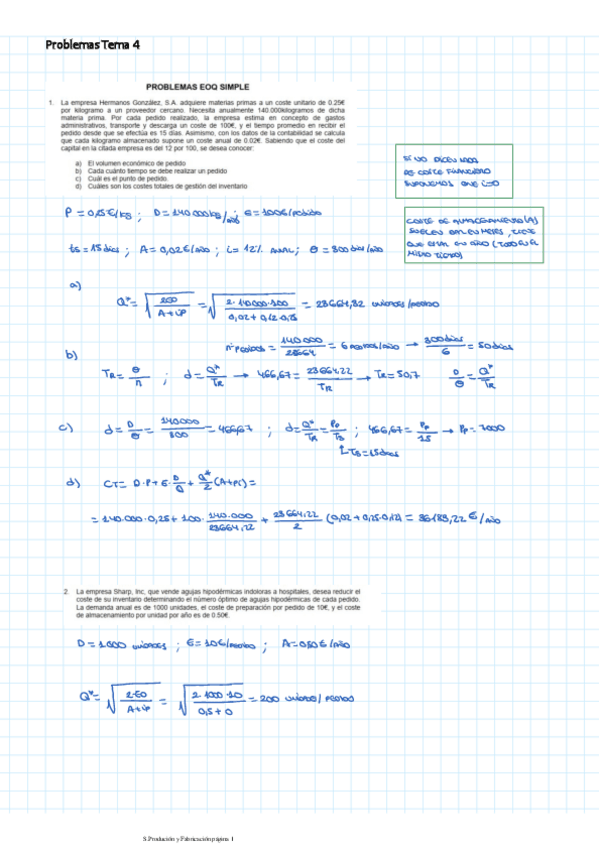 Problemas Tema 4
PROBLEMAS EOQ SIMPLE
1. La empresa Hermanos González, S.A. adquiere materias primas a un coste unitario de 0.25€
por kilogramo a un proveedor cercano. Necesita anualmente 140.000kilogramos de dicha
materia prima. Por cada pedido realizado, la empresa estima en concepto de gastos
administrativos, transporte y descarga un coste de 100€, y el tiempo promedio en recibir el
pedido desde que se efectúa es 15 días. Asimismo, con los datos de la contabilidad se calcula
que cada kilogramo almacenado supone un coste anual de 0.02€. Sabiendo que el coste del
capital en la citada empresa es del 12 por 100, se desea conocer:
a) El volumen económico de pedido
b) Cada cuánto tiempo se debe realizar un pedido
c) Cuál es el punto de pedido.
d) Cuáles son los costes totales de gestión del inventario
SI NO DICEN NADA
DE COSTE FINANCIERO
SUPONEMOS QUE i=0
COSTE DE ALMACENAMIENTO (A)
SUELEN DAR EN MESES, TIENE
QUE ESTAR EN AÑO (TODO EN EL
MISMO TIEMPO)
P = 0,25 €/kg ; D = 140.000 kg/año ; E = 100€/pedido
ts = 15 días ; A = 0,02 €/año ; i = 12% ANUAL ; θ = 300 días/año
a)
Q* = √(2ED / A+iP) = √(2·140000·100 / 0,02+0,12·0,25) = 23664,32 UNIDADES/PEDIDO
b)
nº PEDIDOS = 140.000 / 23664 = 6 PEDIDOS/AÑO → 300 días / 6 = 50 días
TR = θ / n ; d = Q* / TR → 466,67 = 23664,22 / TR → TR = 50,7 D / θ = Q* / TR
c) d = D / θ = 140.000 / 300 = 466,67 ; d = Q* / TR = Pp / TS ; 466,67 = Pp / 15 → Pp = 7000
TS = 15 días
d) CT = D·P + E·D/Q + Q*/2 (A+Pi) =
= 140.000·0,25 + 100·140.000 / 23664,22 + 23664,22 / 2 (0,02 + 0,25·0,12) = 36183,22 €/AÑO
2. La empresa Sharp, Inc, que vende agujas hipodérmicas indoloras a hospitales, desea reducir el
coste de su inventario determinando el número óptimo de agujas hipodérmicas de cada pedido.
La demanda anual es de 1000 unidades, el coste de preparación por pedido de 10€, y el coste
de almacenamiento por unidad por año es de 0.50€.
D = 1.000 UNIDADES ; E = 10€/PEDIDO ; A = 0,50 €/AÑO
Q* = √(2·ED / A+iP) = √(2·1000·10 / 0,5+0) = 200 UNIDADES/PEDIDO
S.Produción y Fabricación página 1